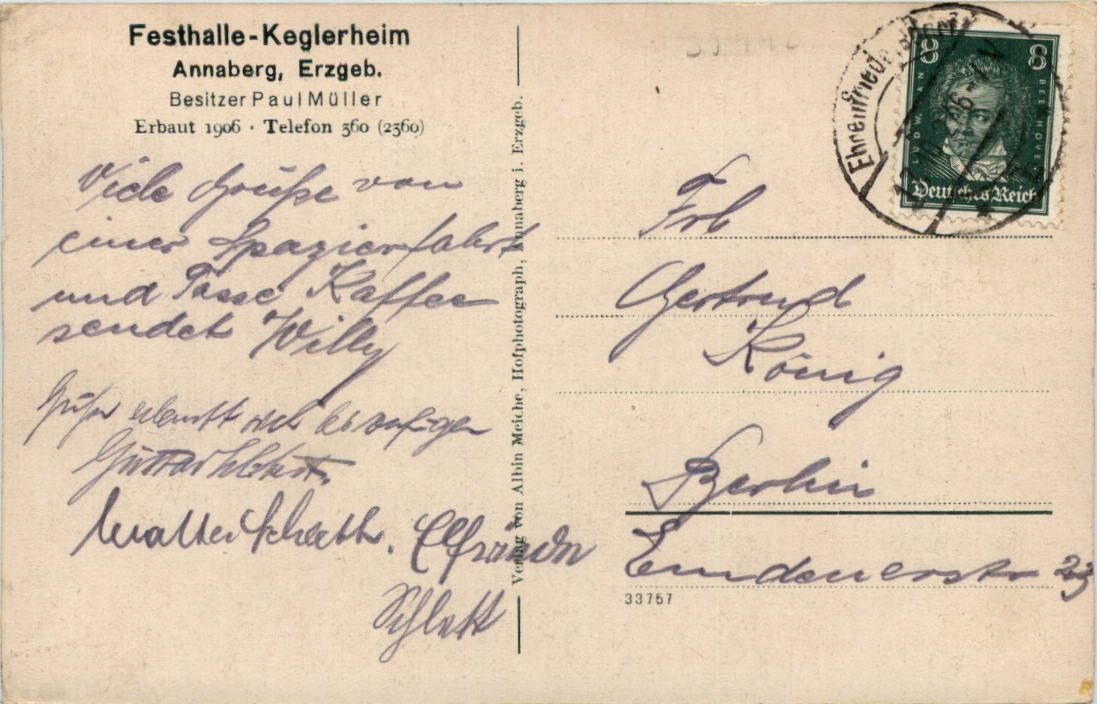 Festhalle-Keglerheim
Annaberg, Erzgeb.
Besitzer Paul Müller
Erbaut 1906 · Telefon 360 (2360)
Viele Grüße von
einer Spazierfahrt
und Tasse Kaffee
sendet Willy
Walter Schlett. Elfriede
Schlett
Verlag von Albin Meiche, Hofphotograph, Annaberg i. Erzgeb.
8 8
LUDW. VAN BEETHOVEN
Deutsches Reich
Frl
Gertrud
König
Berlin
Emdenerstr 23
33757